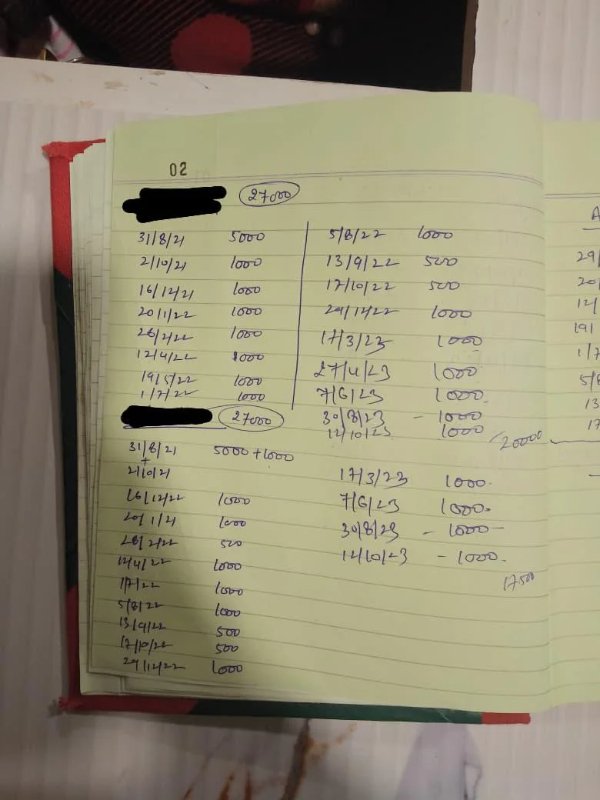 02
27000
31/8/21 5000
2/10/21 1000
16/12/21 1000
20/1/22 1000
26/2/22 1000
12/4/22 1000
19/5/22 1000
1/7/22 1000
5/8/22 1000
13/9/22 500
17/10/22 500
29/12/22 1000
17/3/23 1000
27/4/23 1000
7/6/23 1000
30/8/23 - 1000
12/10/23 1000
20000
27000
31/8/21 5000 + 1000
+
2/10/21
16/12/22 1000
20/1/21 1000
26/2/22 500
12/4/22 1000
1/7/22 1000
5/8/22 1000
13/9/22 500
17/10/22 500
29/12/22 1000
17/3/23 1000.
7/6/23 1000.
30/8/23 - 1000
12/10/23 - 1000.
17500
A
29/
20/
12/
19/
1/7
5/8
13
17